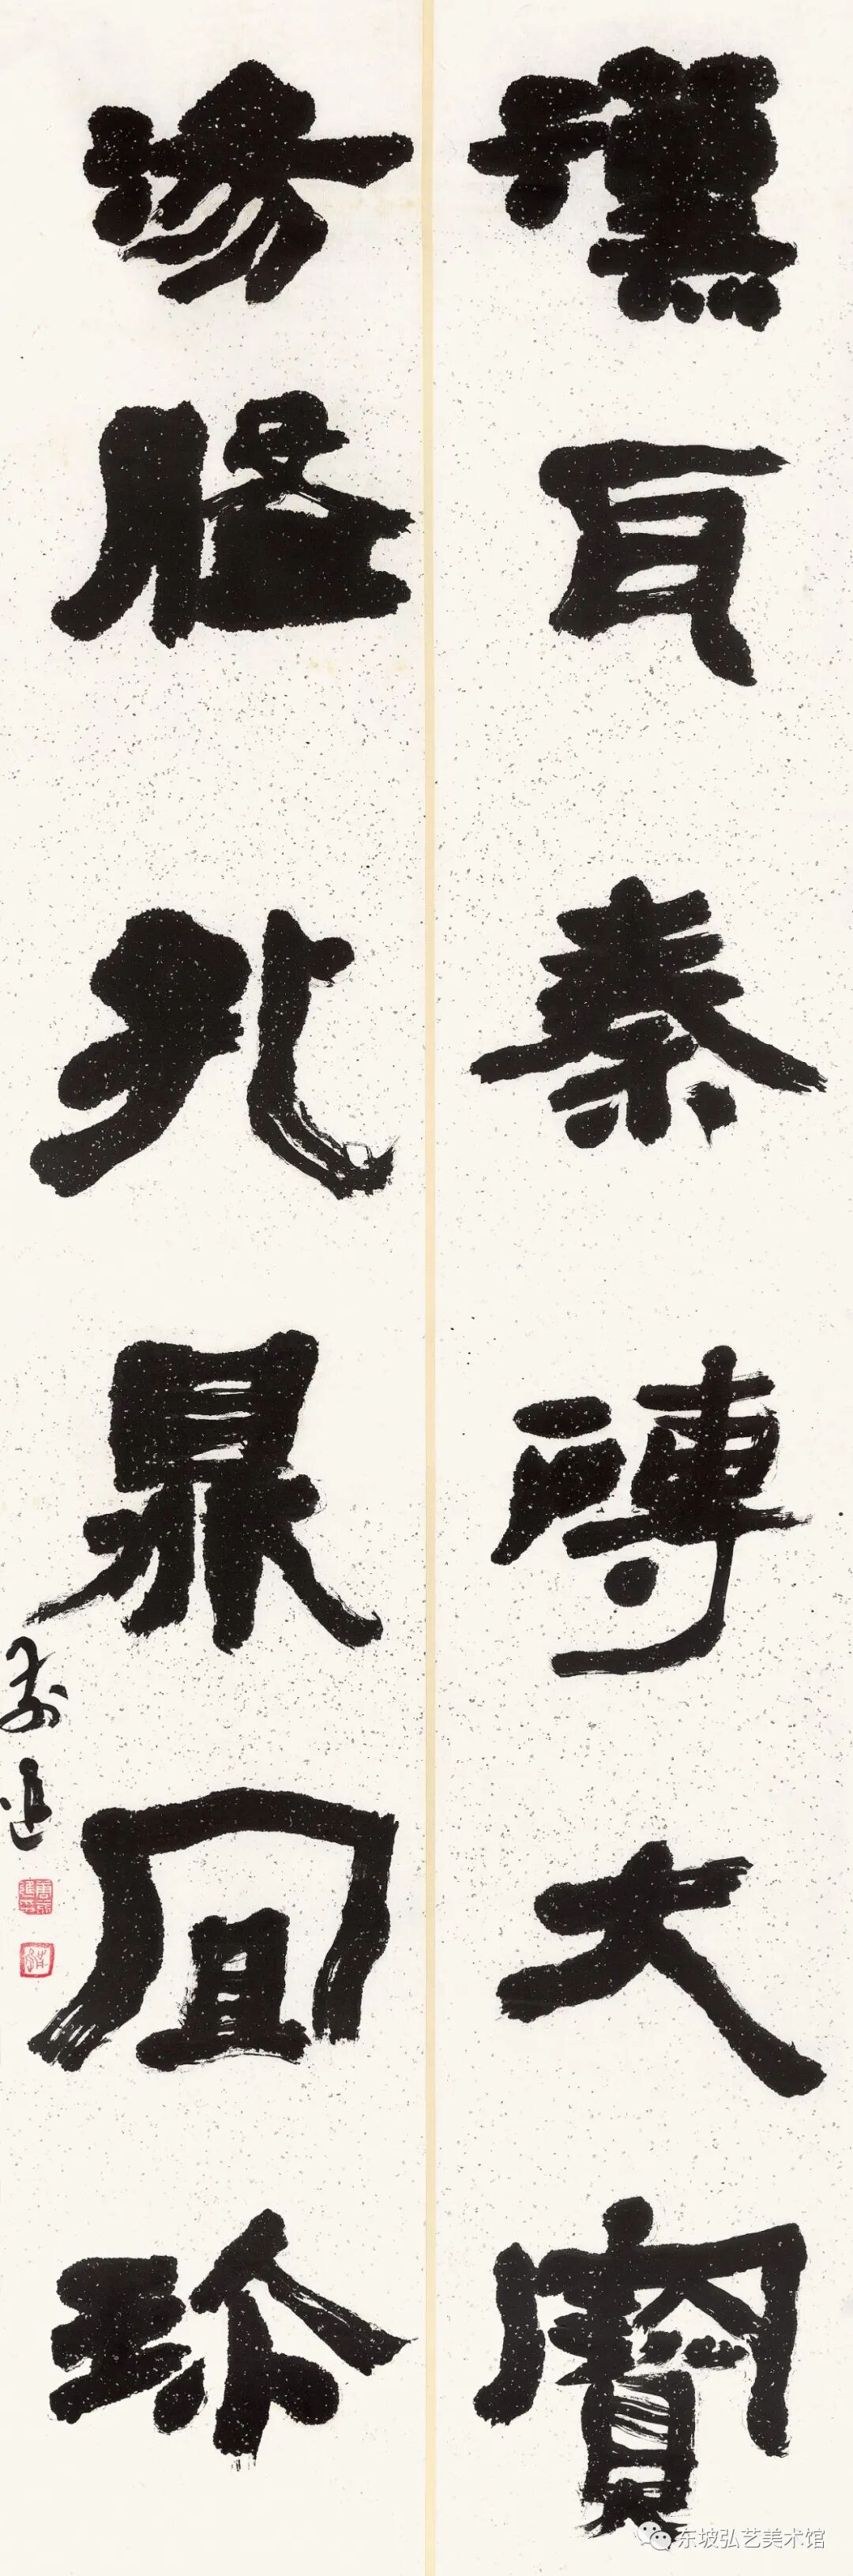 漢瓦秦磚大寶
湯盤孔鼎宜珍
东坡弘艺美术馆